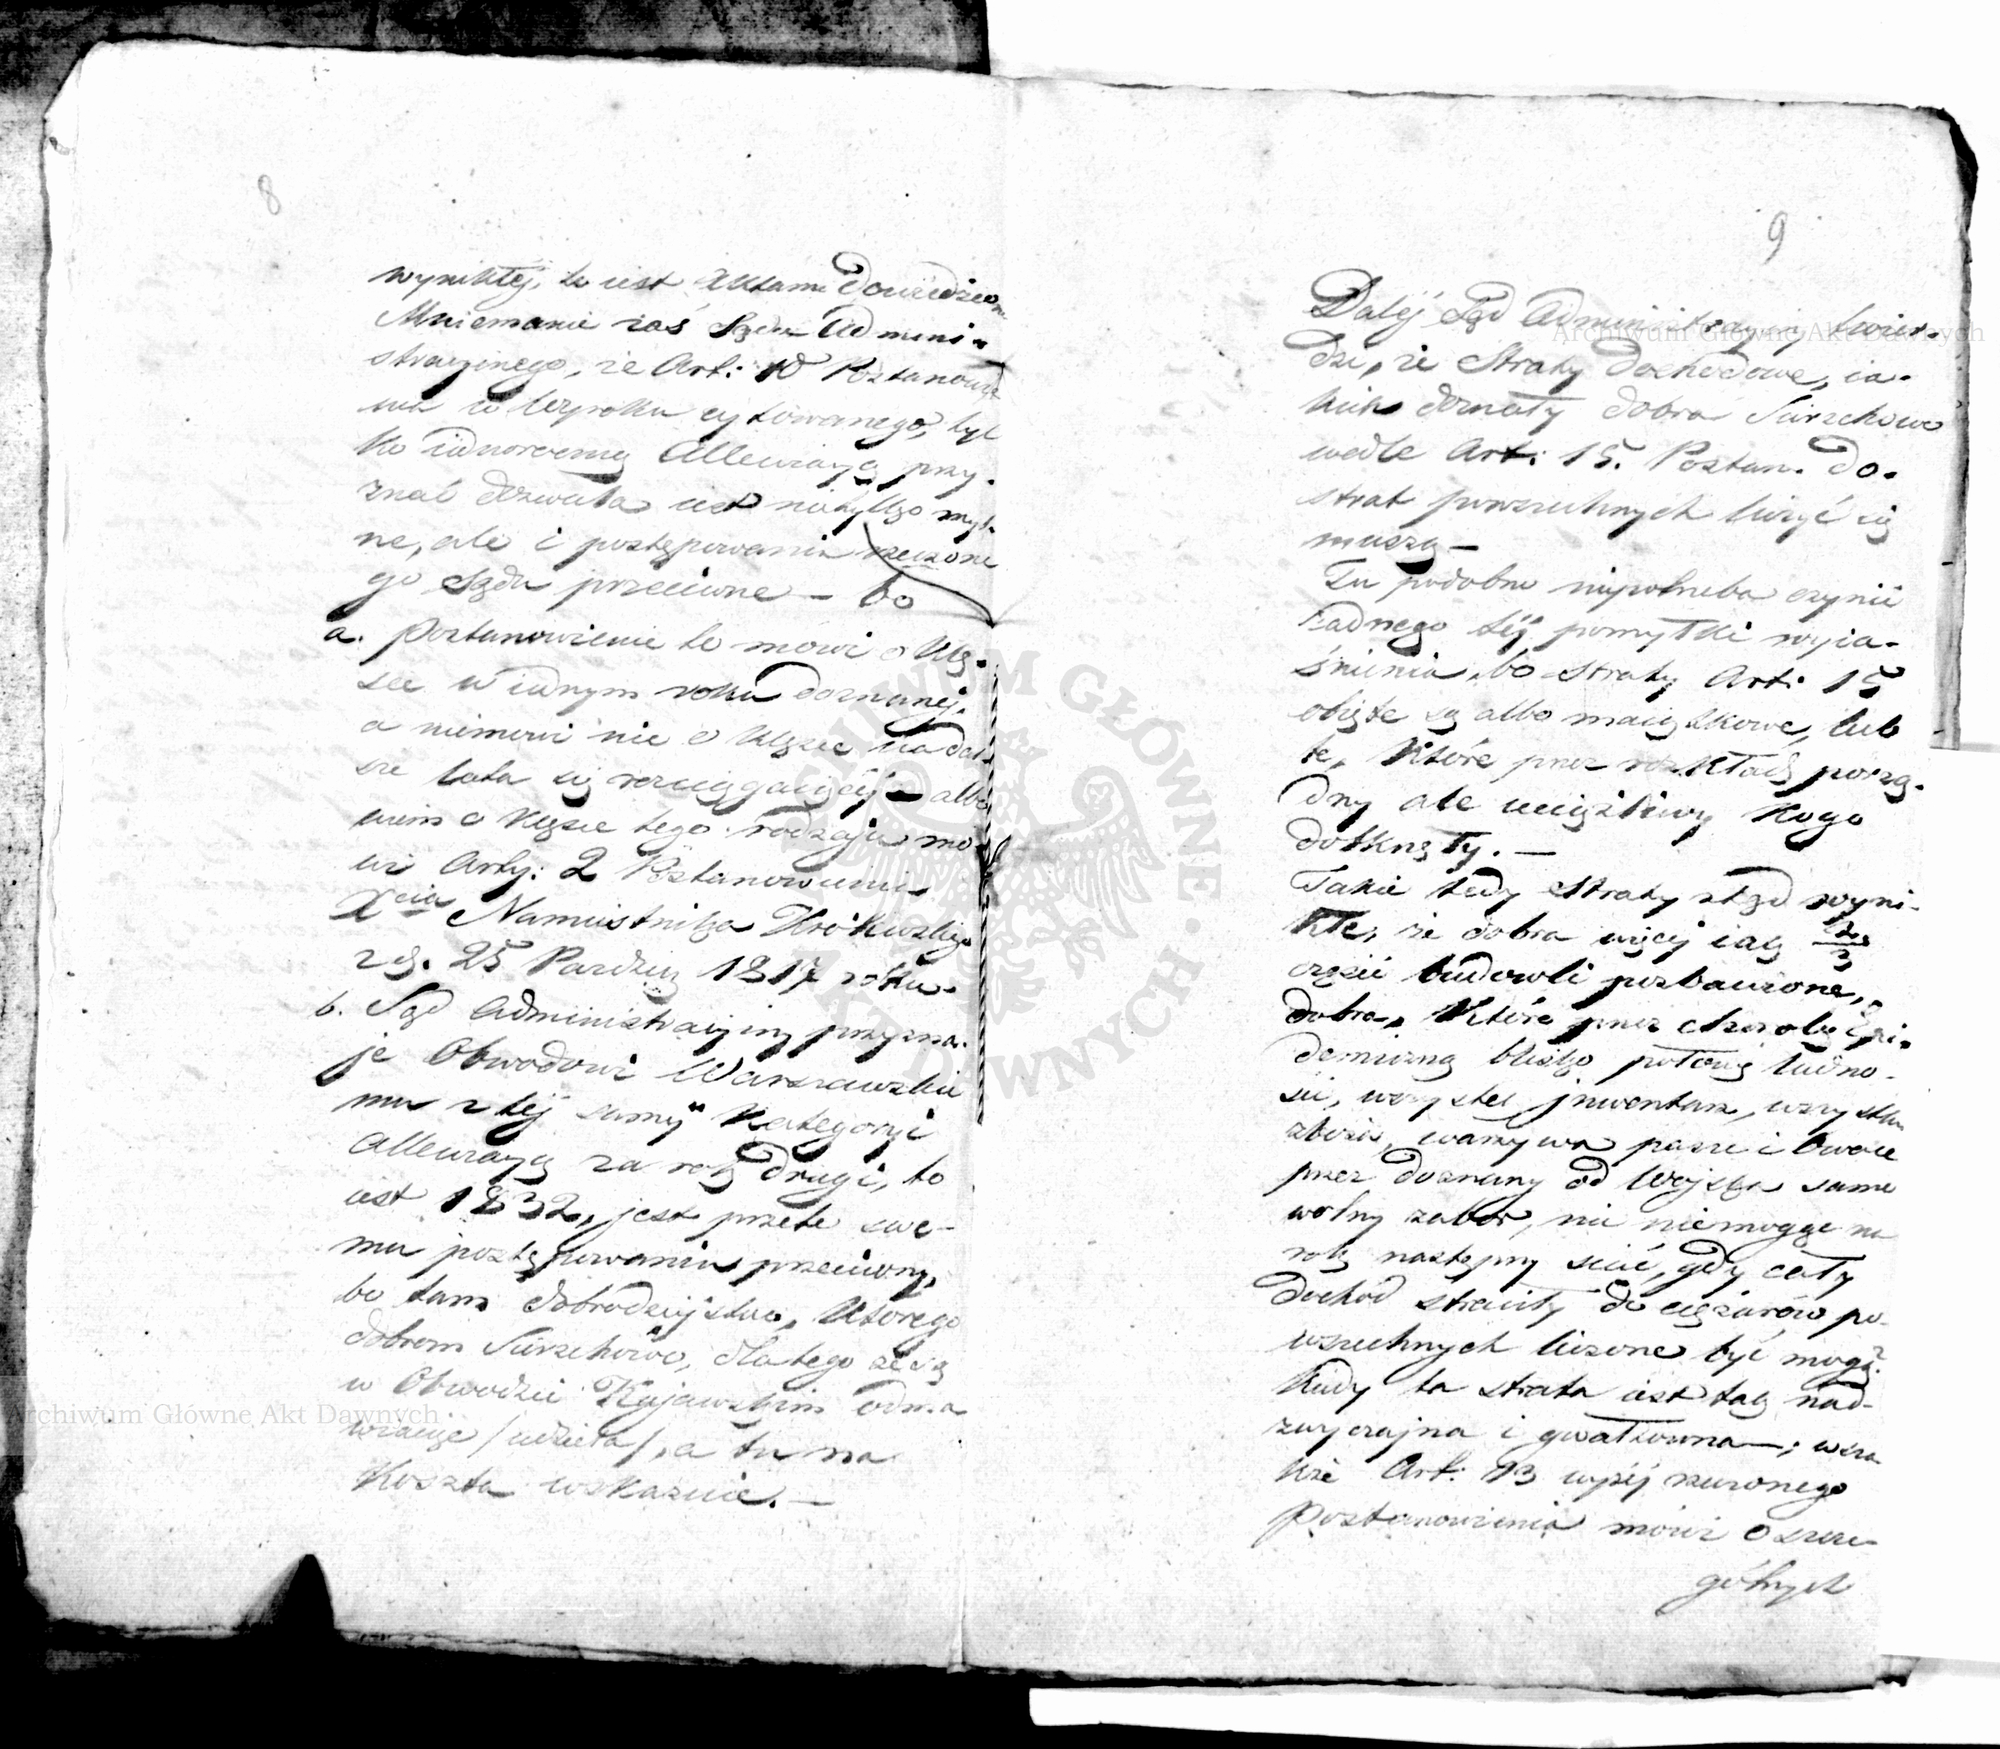 8
wynikłéj, to iest Aktami dowiedzion
Mniemanie zaś Sądu Admini-
stracyinego, że Art: 10 Postanowie
nia w byroku cytowanego, tyl
ko iednoroczną Allewiacyą przy-
znać dozwala iest nietylko myl-
ne, ale i postępowania rzeczone
go Sądu przeciwne — bo
a. postanowienie to mówi o klę-
sce w iednym roku doznanéj,
a niemówi nic o klęsce na dal
sze lata się rozciągaiącéj — albo
wiem o klęsce tego rodzaju mó-
wi Arty: 2 Postanowienia
Xcia Namiestnika Królewskiego
z d. 25 Paździer 1817 roku.
b. Sąd Administracyiny przyzna-
je Obwodowi Warszawskie
mu z téj saméj Kategoryi
Allewiacyą za rok drugi, to
iest 1832, jest przeto swe-
mu postępowaniu przeciwny,
bo tam dobrodzieystwa, którego
dobrom Sierzchowo, dlatego że są
w Obwodzie Kujawskim odma
wiaiąc /udziela/, a tu na
Koszta wskazuie. —
9
Daléj Sąd Administracyiny twier-
dzi, że Straty dochodowe, ia-
kich doznały dobra Sierzchowo
wedle Art: 15. Postan. do
strat powszechnych liczyć się
muszą —
Tu podobno niepotrzeba czynić
żadnego téj pomyłki wyia-
śnienia, bo straty Art: 15
obięte są albo maiątkowe, lub
te, które przez rozkład porzą-
dny ale uciążliwy kogo
dotknęły. —
Takie tedy straty ztąd wyni-
kłe, że dobra więcéj iak 2/3
części budowli pozbawione,
dobra, które przez chorobę Epi-
demiczną blisko połowę ludno-
ści, wszystek inwentarz, wszystkie
zboża, warzywa pasze i Owoce
przez doznany od Woyska samo
wolny zabór, nic niemogąc na
rok następny siać, gdy cały
dochód straciły do ciężarów po-
wszechnych liczone być mogą?
Kiedy ta strata iest tak nad-
zwyczajna i gwałtowna —; wsza
kże Art: 13 wyżéj rzeczonego
Postanowienia mówi o szcze-
gólnych